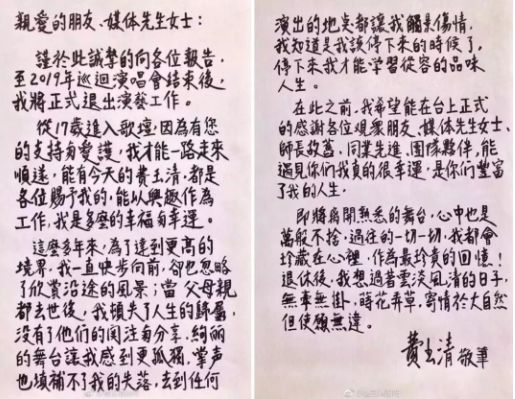 親愛的朋友、媒体先生女士：
謹於此誠摯的向各位報告，
至2019年巡迴演唱會結束後，
我將正式退出演藝工作。
從17歲進入歌壇，因為有您
的支持與愛護，我才能一路走來
順遂，能有今天的費玉清，都是
各位賜予我的，能以興趣作為
工作，我是多麼的幸福與幸運。
這麼多年來，為了達到更高的
境界，我一直快步向前，卻也忽略
了欣賞沿途的風景；當父母親
都去世後，我頓失了人生的歸屬，
沒有了他們的關注與分享，絢麗
的舞台讓我感到更孤獨，掌声
也填補不了我的失落，去到任何
演出的地点都讓我觸景傷情，
我知道是我該停下來的時候了，
停下來我才能学習從容的品味
人生。
在此之前，我希望能在台上正式
的感謝各位观衆朋友、媒体先生女士、
師長故舊、同業先進、團隊夥伴，能
遇見你們我真的很幸運，是你們豐富
了我的人生。
即將離開熟悉的舞台，心中也是
萬般不捨，過往的一切一切，我都會
珍藏在心裡，作為最珍貴的回憶！
退休後，我想過著雲淡風清的日子，
無牽無掛，蒔花弄草，寄情於大自然
但使願無違。
費玉清 敬筆